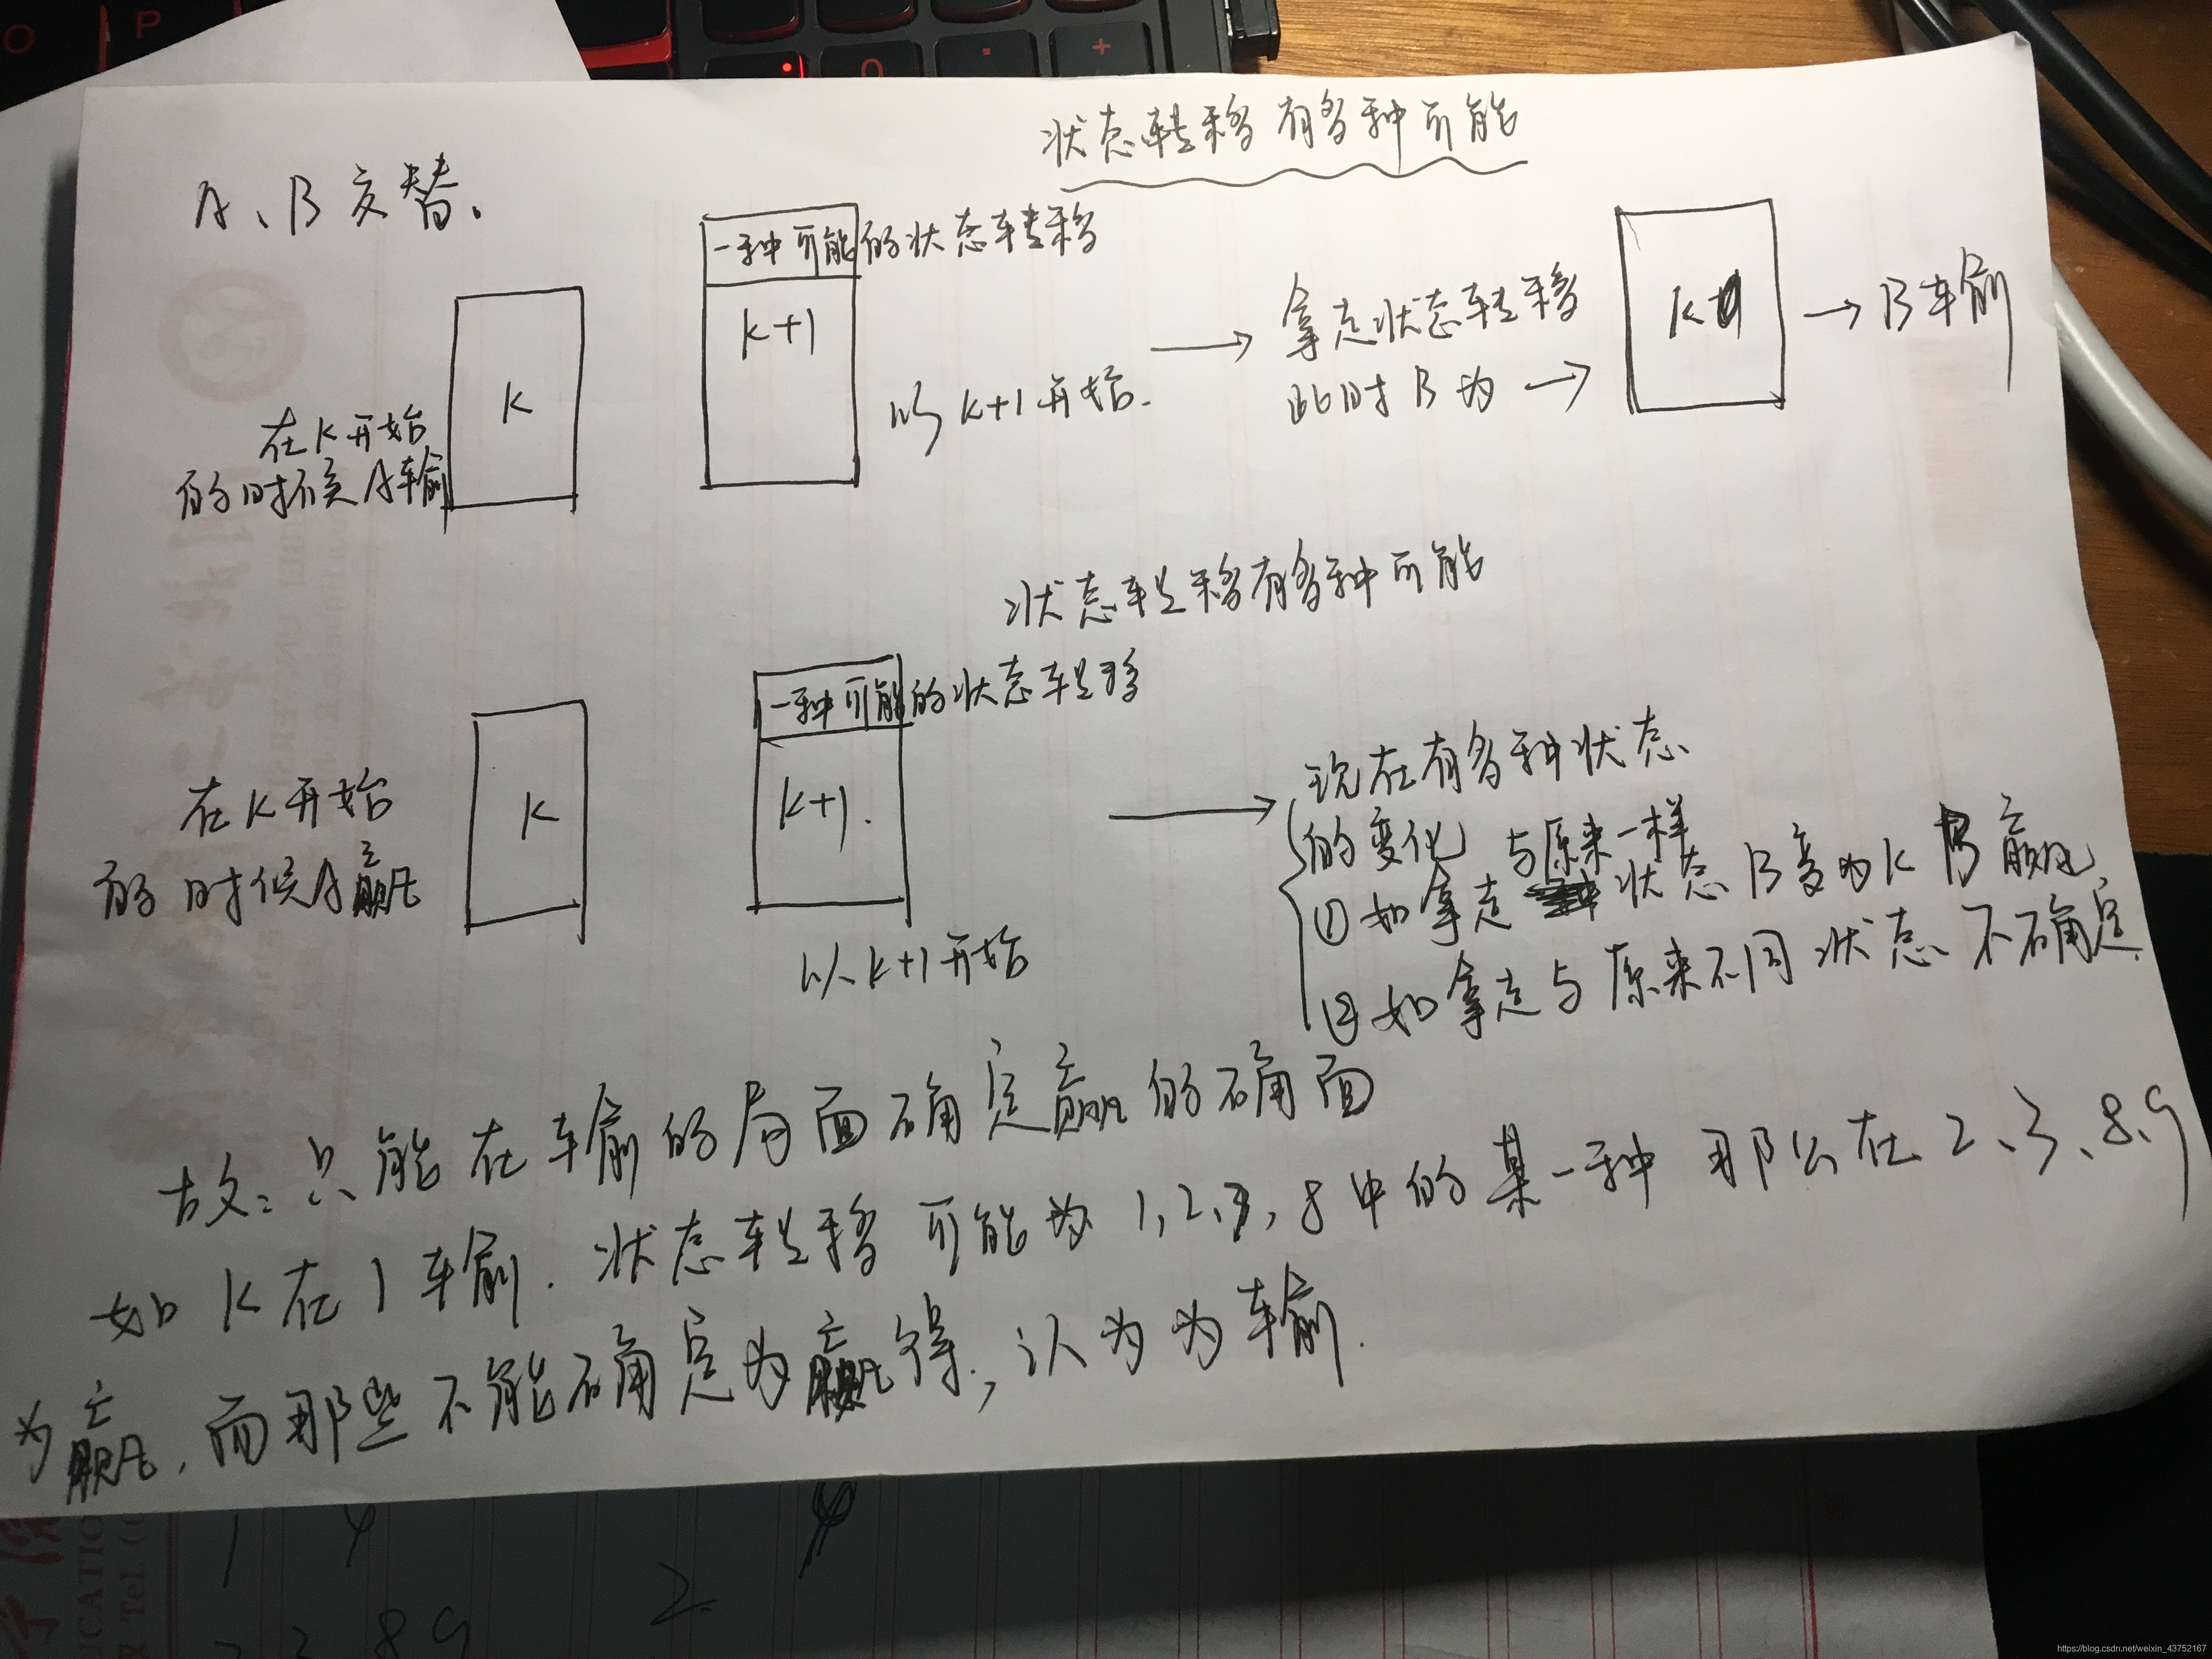 O
P
0
.
+
状态转移有多种可能
A、B交替。
一种可能的状态转移
k+1
k
在k开始
的时候A输
以k+1开始.
拿走状态转移
此时B为
k
B输
状态转移有多种可能
一种可能的状态转移
k+1.
k
在k开始
的时候A赢
以k+1开始
现在有多种状态
的变化
与原来一样
①如拿走 状态B变为k B赢,
②如拿走与原来不同状态不确定.
故:只能在输的局面确定赢的确面
如k在1输.状态转移可能为1,2,7,8中的某一种 那么在2、3、8、9
为赢,而那些不能确定为赢得,认为为输.
1 4
2.
8 9
UCATIO
Tel.
https://blog.csdn.net/weixin_43752167